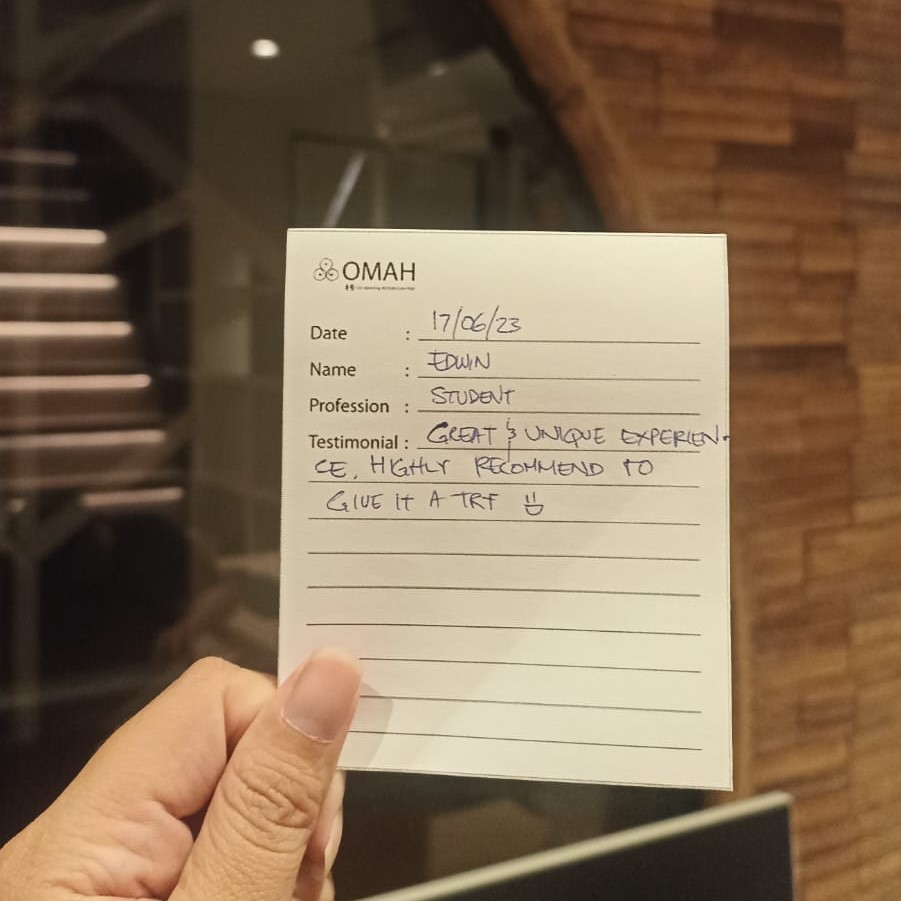 OMAH
Date : 17/06/23
Name : EDWIN
Profession : STUDENT
Testimonial : GREAT & UNIQUE EXPERIEN-
CE, HIGHLY RECOMMEND TO
GIVE IT A TRY